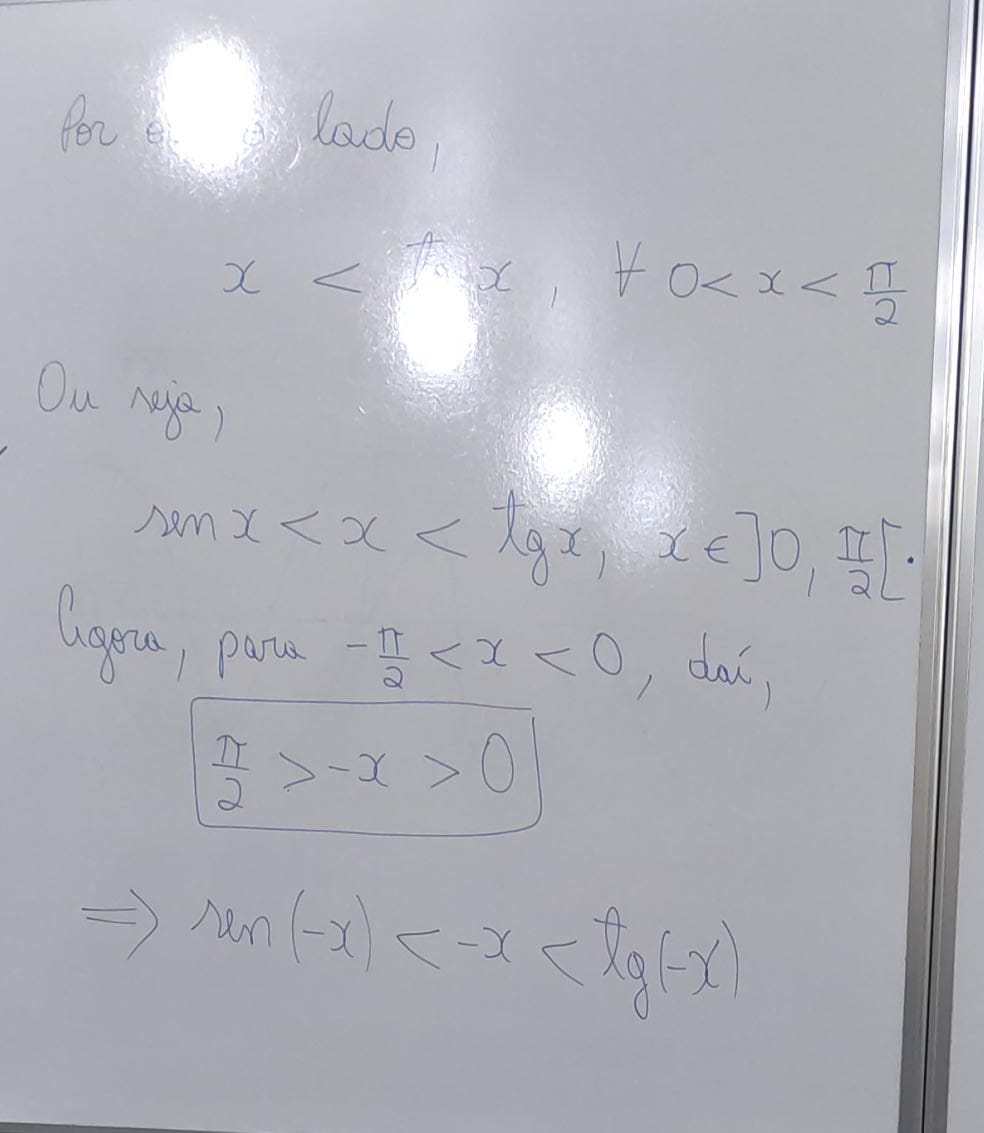 Por lado,
x < tg x , ∀ 0 < x < π/2
Ou seja,
sen x < x < tg x, x ∈ ]0, π/2[.
Agora, para -π/2 < x < 0, daí,
π/2 > -x > 0
⇒ sen(-x) < -x < tg(-x)